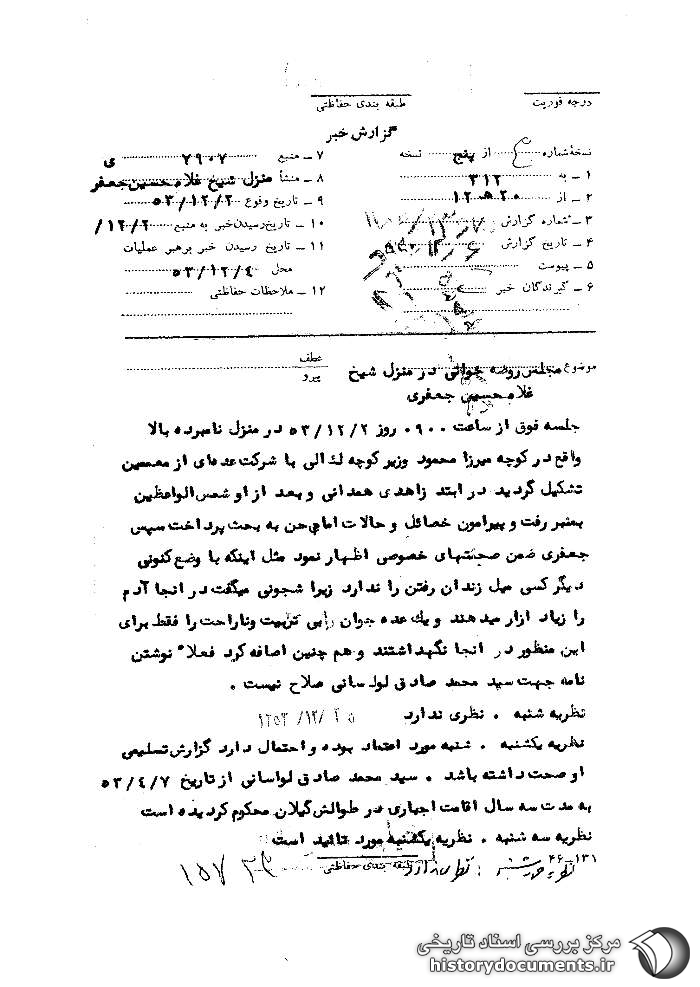 درجه فوریت
طبقه بندی حفاظتی
گزارش خبر
نسخهٔ شماره از پنج نسخه
۱ - به ۳۱۲
۲ - از ۲۰ ه ۱۲
۳ - شماره گزارش
۴ - تاریخ گزارش
۵ - پیوست
۶ - گیرندگان خبر
۷ - منبع ۷۹۰۷
۸ - منشأ منزل شیخ غلامحسین جعفر
ی
۹ - تاریخ وقوع ۵۳/۱۲/۲
۱۰ - تاریخ رسیدن خبر به منبع ۱۲/۲/
۱۱ - تاریخ رسیدن خبر برهبر عملیات
محل ۵۳/۱۲/۴
۱۲ - ملاحظات حفاظتی
موضوع مجلس روضه خوانی در منزل شیخ
غلامحسین جعفری
عطف
پیرو
جلسه فوق از ساعت ۰۹۰۰ روز ۵۳/۱۲/۲ در منزل نامبرده بالا
واقع در کوچه میرزا محمود وزیر کوچه لئالی با شرکت عده‌ای از معممین
تشکیل گردید در ابتد زاهدی همدانی و بعد از او شمس الواعظین
بمنبر رفت و پیرامون خصائل و حالات امام‌حسن به بحث پرداخت سپس
جعفری ضمن صحبتهای خصوصی اظهار نمود مثل اینکه با وضع کنونی
دیگر کسی میل زندان رفتن را ندارد زیرا شجونی میگفت در انجا آدم
را زیاد ازار میدهند و یك عده جوان رابی تربیت وناراحت را فقط برای
این منظور در انجا نگهداشتند و هم چنین اضافه کرد فعلا" نوشتن
نامه جهت سید محمد صادق لواسانی صلاح نیست .
نظریه شنبه . نظری ندارد
نظریه یکشنبه . شنبه مورد اعتماد بوده و احتمال دارد گزارش تسلیمی
او صحت داشته باشد . سید محمد صادق لواسانی از تاریخ ۵۳/۴/۷
به مدت سه سال اقامت اجباری در طوالش گیلان محکوم گردیده است
نظریه سه شنبه . نظریه یکشنبه مورد تائید است
طبقه بندی حفاظتی
۴۶-۱۳۱
نظریه چهارشنبه : نظری ندارد
مرکز بررسی اسناد تاریخی
historydocuments.ir